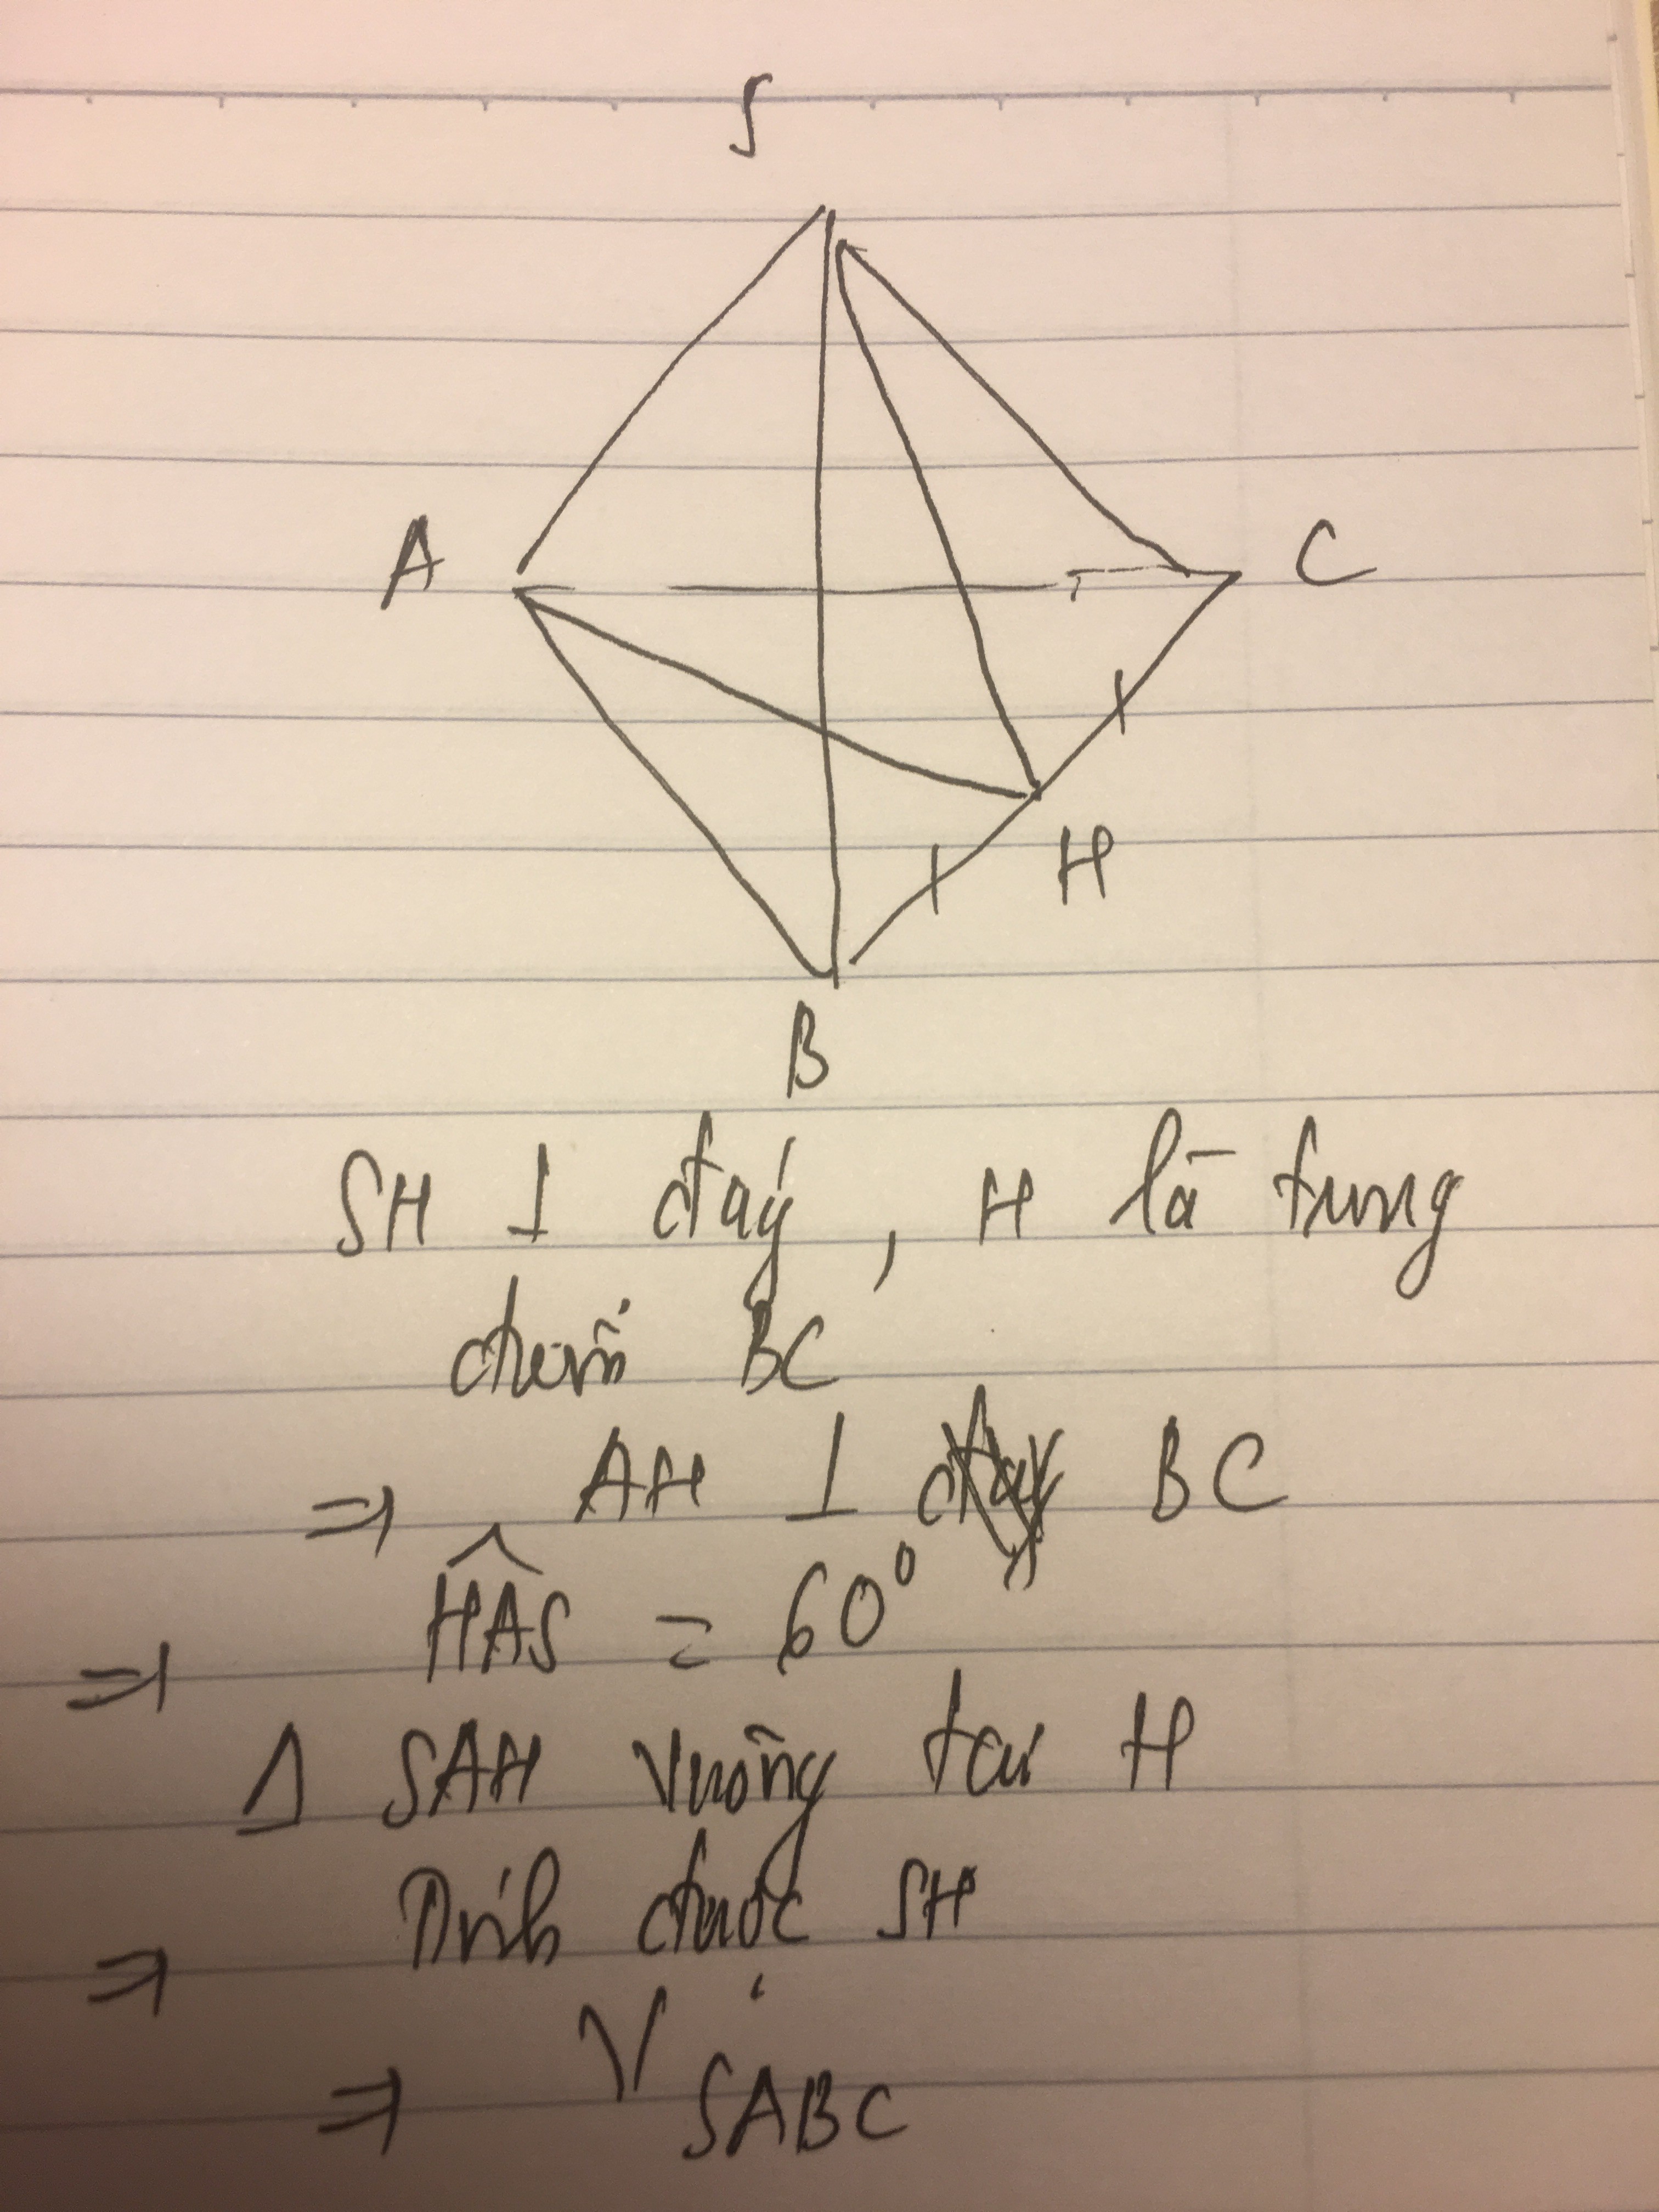 S
A
C
H
B
SH ⊥ đáy, H là trung
điểm BC
⇒ AH ⊥ BC
⇒ HAS = 60°
Δ SAH vuông tại H
⇒ Tính được SH
⇒ V SABC